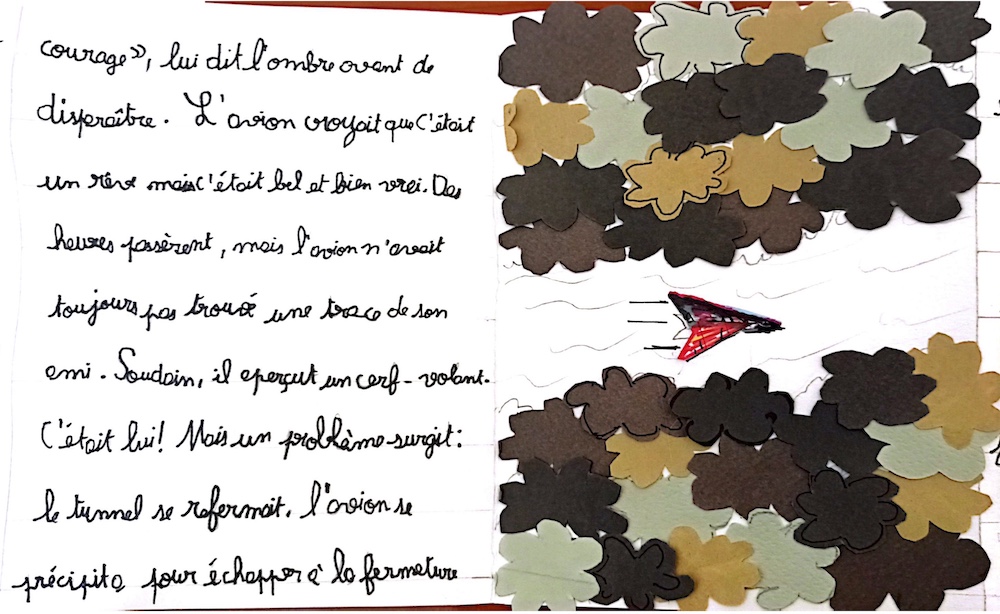 courage», lui dit l'ombre avant de
disparaître. L'avion croyait que c'était
un rêve mais c'était bel et bien vrai. Des
heures passèrent, mais l'avion n'avait
toujours pas trouvé une trace de son
ami. Soudain, il aperçut un cerf-volant.
C'était lui! Mais un problème surgit:
le tunnel se refermait. l'avion se
précipita pour échapper à la fermeture